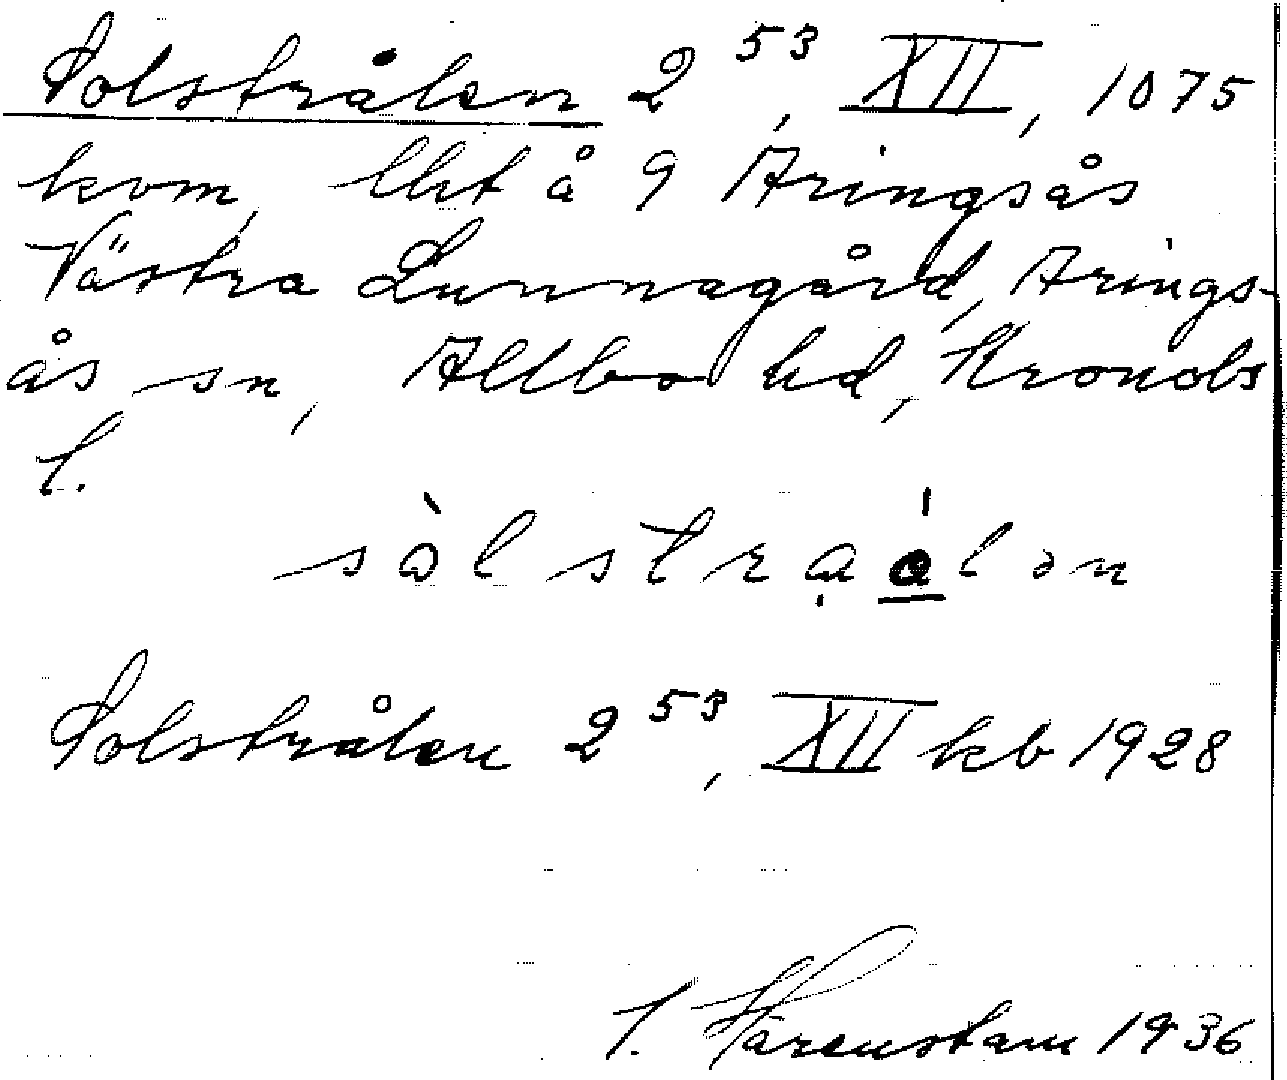 Solstrålen 2⁵³, XII, 1075
kvm, lht å 9 Aringsås
Västra Lunnagård, Arings-
ås sn, Allbo hd, Kronobs
l.
sòlstraålən
Solstrålen 2⁵³, XII kb 1928
Härenstam 1936